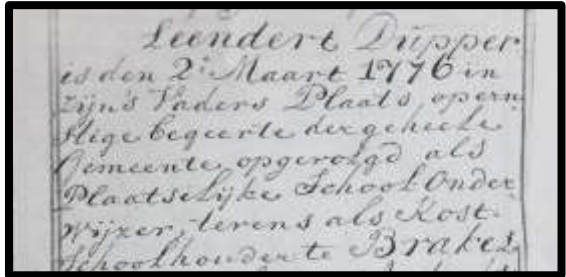 Leendert Dupper
is den 2e Maart 1776 in
zijn's Vaders Plaats, opern
stige begeerte der geheele
Gemeente opgevolgd als
Plaatselijke School Onder
wijzer, tevens als Kost-
Schoolhouder te Brakel,